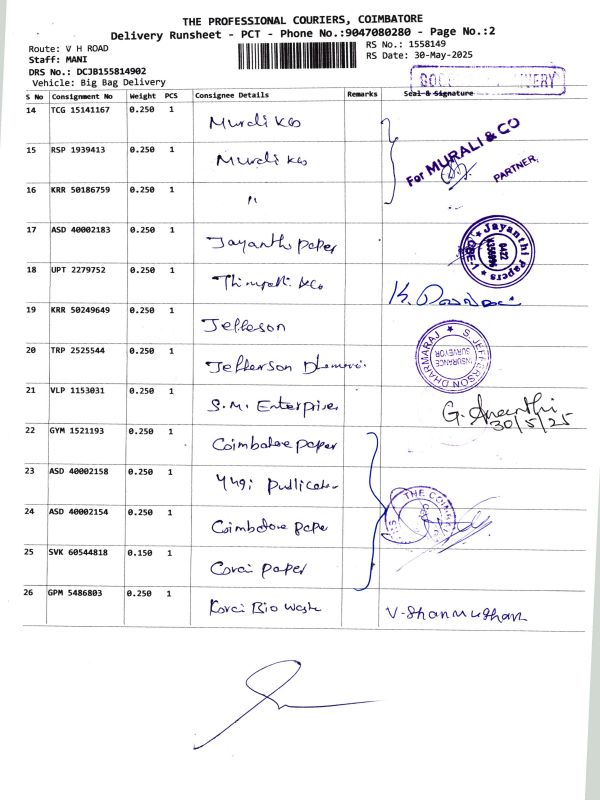 THE PROFESSIONAL COURIERS, COIMBATORE
Delivery Runsheet - PCT - Phone No.:9047080280 - Page No.:2
Route: V H ROAD
RS No.: 1558149
Staff: MANI
RS Date: 30-May-2025
DRS No.: DCJB155814902
Vehicle: Big Bag Delivery
S No Consignment No Weight PCS Consignee Details Remarks Seal & Signature
14 TCG 15141167 0.250 1 Murali & Co
For MURALI & CO
PARTNER.
15 RSP 1939413 0.250 1 Murali & Co
16 KRR 50186759 0.250 1 "
17 ASD 40002183 0.250 1 Jayanthi paper
Jayanthi Papers
0422
CBE-1
18 UPT 2279752 0.250 1
19 KRR 50249649 0.250 1 Jefferson
20 TRP 2525544 0.250 1 Jefferson
S. JEFFERSON DHARMARAJ
INSURANCE
SURVEYOR
21 VLP 1153031 0.250 1 S.M. Enterprises
G. Ananthi
30/5/25
22 GYM 1521193 0.250 1 Coimbatore paper
23 ASD 40002158 0.250 1
THE COIMB
24 ASD 40002154 0.250 1 Coimbatore paper
25 SVK 60544818 0.150 1 Covai paper
26 GPM 5486803 0.250 1 Kovai Bio Waste V-Shanmugham